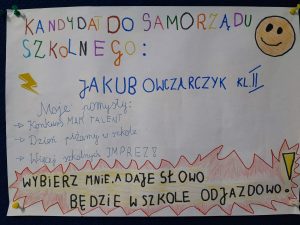 KANDYDAT DO SAMORZĄDU
SZKOLNEGO:
JAKUB OWCZARCZYK KL. II
Moje pomysły:
→ Konkurs MAM TALENT
→ Dzień piżamy w szkole
→ Więcej szkolnych IMPREZ!
WYBIERZ MNIE, A DAJĘ SŁOWO
BĘDZIE W SZKOLE ODJAZDOWO!